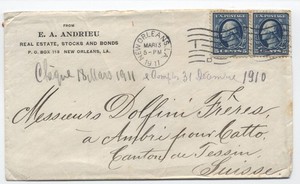 FROM
E. A. ANDRIEU
REAL ESTATE, STOCKS AND BONDS
P. O. BOX 116 NEW ORLEANS, LA.
NEW ORLEANS, LA
MAR 13
5-PM
1911
Chèque 1911 & Compte 31 Décembre 1910
Messieurs Dolfini Frères,
à Ambri pour Catto,
Canton de Tessin,
Suisse.